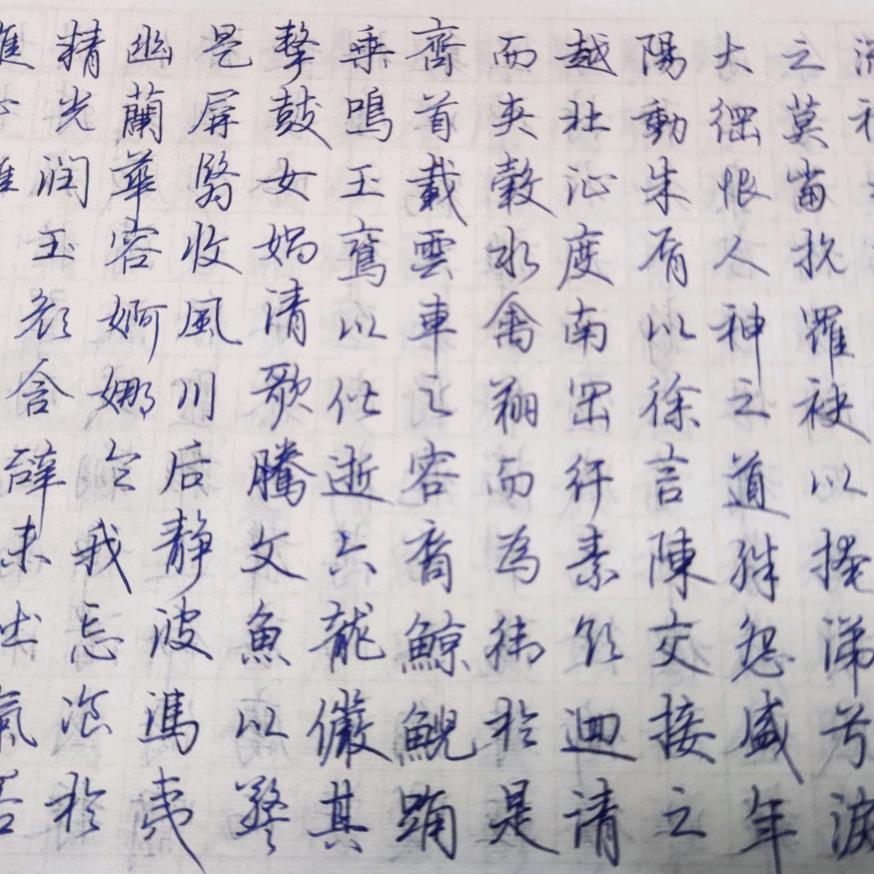 精光润玉顏含辭未吐氣若
幽蘭華容婀娜令我忘飡於
是屏翳收風川后静波馮夷
擊鼓女媧清歌騰文魚以警
乘鳴玉鸞以偕逝六龍儼其
齊首載雲車之容裔鯨鯢踊
而夾轂水禽翔而為衛於是
越北沚度南岡紆素領迴请
陽動朱唇以徐言陳交接之
大綱恨人神之道殊怨盛年
之莫當抗羅袂以掩涕兮淚